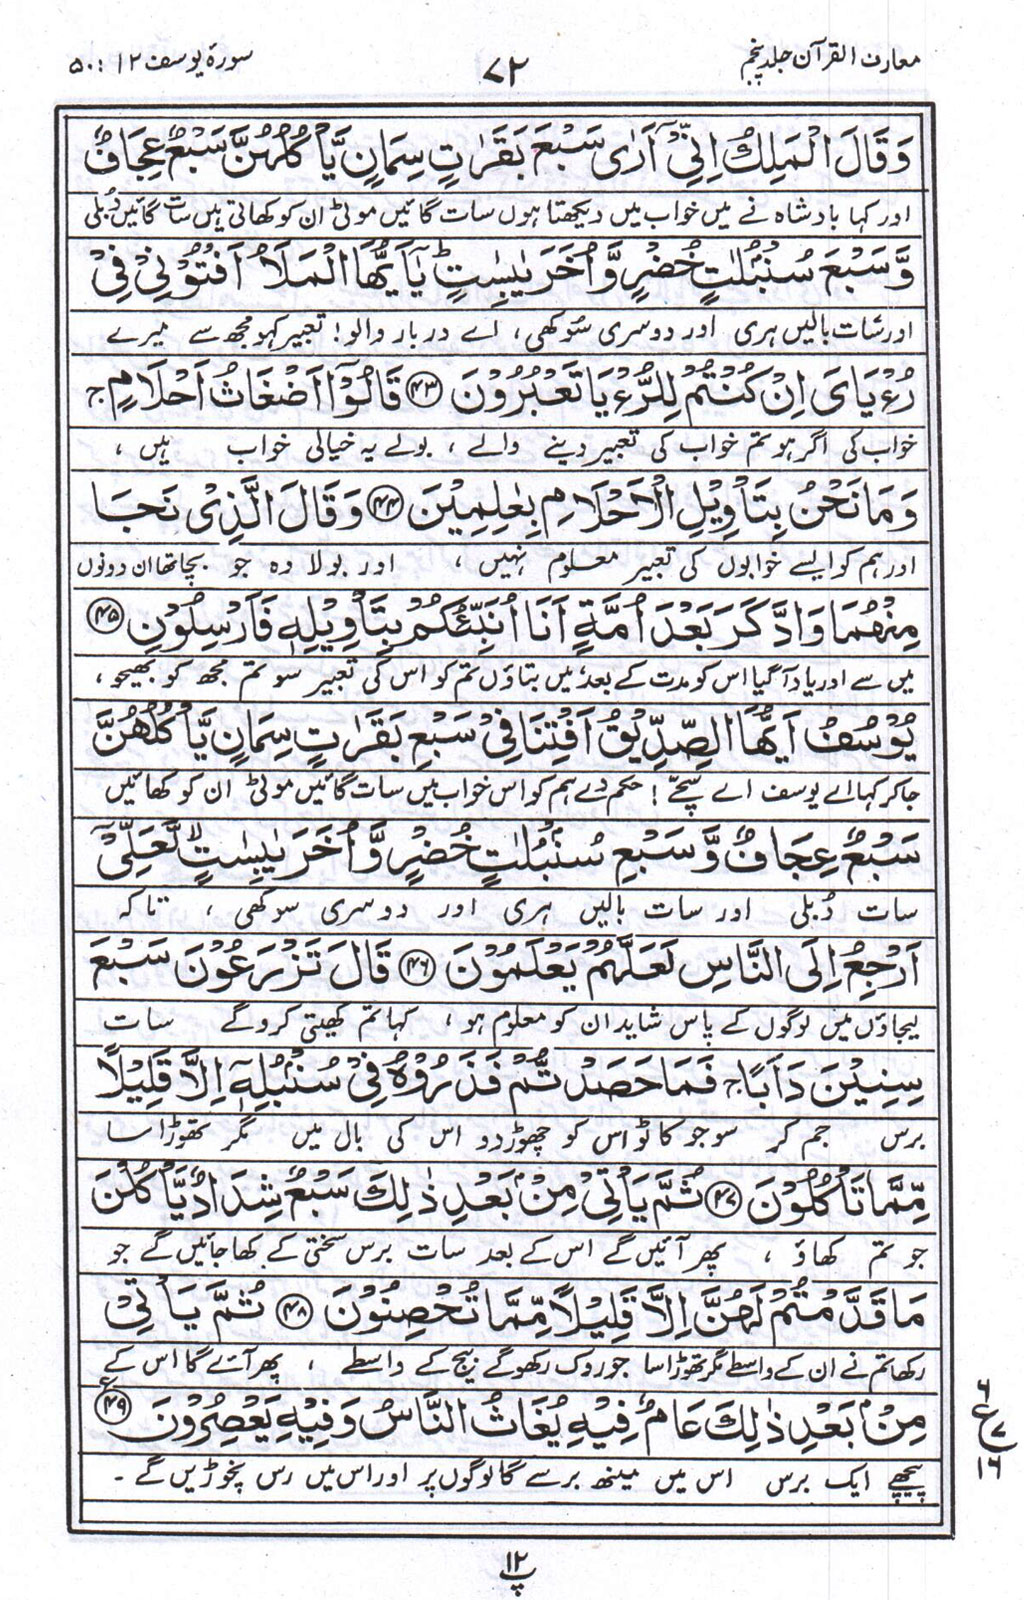 معارف القرآن جلد پنجم
۷۲
سورۂ یوسف ۱۲ : ۵۰
وَقَالَ الْمَلِكُ اِنِّیْۤ اَرٰی سَبْعَ بَقَرٰتٍ سِمَانٍ یَّاْكُلُهُنَّ سَبْعٌ عِجَافٌ
اور کہا بادشاہ نے میں خواب میں دیکھتا ہوں سات گائیں موٹی ان کو کھاتی ہیں سات گائیں دُبلی
وَّسَبْعَ سُنْۢبُلٰتٍ خُضْرٍ وَّاُخَرَ یٰبِسٰتٍ ؕ یٰۤاَیُّهَا الْمَلَاُ اَفْتُوْنِیْ فِیْ
اور سات بالیں ہری اور دوسری سُوکھی ، اے دربار والو! تعبیر کہو مجھ سے میرے
رُءْیَایَ اِنْ كُنْتُمْ لِلرُّءْیَا تَعْبُرُوْنَ ﴿۴۳﴾ قَالُوْۤا اَضْغَاثُ اَحْلَامٍ ۚ
خواب کی اگر ہو تم خواب کی تعبیر دینے والے ، بولے یہ خیالی خواب ہیں ،
وَمَا نَحْنُ بِتَاْوِیْلِ الْاَحْلَامِ بِعٰلِمِیْنَ ﴿۴۴﴾ وَقَالَ الَّذِیْ نَجَا
اور ہم کو ایسے خوابوں کی تعبیر معلوم نہیں ، اور بولا وہ جو بچا تھا ان دونوں
مِنْهُمَا وَادَّكَرَ بَعْدَ اُمَّةٍ اَنَا اُنَبِّئُكُمْ بِتَاْوِیْلِهٖ فَاَرْسِلُوْنِ ﴿۴۵﴾
میں سے اور یاد آ گیا اس کو مدت کے بعد، میں بتاؤں تم کو اس کی تعبیر سو تم مجھ کو بھیجو ،
یُوْسُفُ اَیُّهَا الصِّدِّیْقُ اَفْتِنَا فِیْ سَبْعِ بَقَرٰتٍ سِمَانٍ یَّاْكُلُهُنَّ
جا کر کہا اے یوسف اے سچے ! حکم دے ہم کو اس خواب میں سات گائیں موٹی ان کو کھائیں
سَبْعٌ عِجَافٌ وَّسَبْعِ سُنْۢبُلٰتٍ خُضْرٍ وَّاُخَرَ یٰبِسٰتٍ ۙ لَّعَلِّیْۤ
سات دُبلی اور سات بالیں ہری اور دوسری سوکھی ، تاکہ
اَرْجِعُ اِلَی النَّاسِ لَعَلَّهُمْ یَعْلَمُوْنَ ﴿۴۶﴾ قَالَ تَزْرَعُوْنَ سَبْعَ
لیجاؤں میں لوگوں کے پاس شاید ان کو معلوم ہو ، کہا تم کھیتی کرو گے سات
سِنِیْنَ دَاَبًا ۚ فَمَا حَصَدْتُّمْ فَذَرُوْهُ فِیْ سُنْۢبُلِهٖۤ اِلَّا قَلِیْلًا
برس جم کر سو جو کاٹو اس کو چھوڑ دو اس کی بال میں مگر تھوڑا سا
مِّمَّا تَاْكُلُوْنَ ﴿۴۷﴾ ثُمَّ یَاْتِیْ مِنْۢ بَعْدِ ذٰلِكَ سَبْعٌ شِدَادٌ یَّاْكُلْنَ
جو تم کھاؤ ، پھر آئیں گے اس کے بعد سات برس سختی کے کھا جائیں گے جو
مَا قَدَّمْتُمْ لَهُنَّ اِلَّا قَلِیْلًا مِّمَّا تُحْصِنُوْنَ ﴿۴۸﴾ ثُمَّ یَاْتِیْ
رکھا تم نے ان کے واسطے مگر تھوڑا سا جو روک رکھو گے بیج کے واسطے ، پھر آئے گا اس کے
مِنْۢ بَعْدِ ذٰلِكَ عَامٌ فِیْهِ یُغَاثُ النَّاسُ وَفِیْهِ یَعْصِرُوْنَ ﴿۴۹﴾ ع
پیچھے ایک برس اس میں مینھ برسے گا لوگوں پر اور اس میں رس نچوڑیں گے ۔
۶
ع ۷
۱۶
پ ۱۲